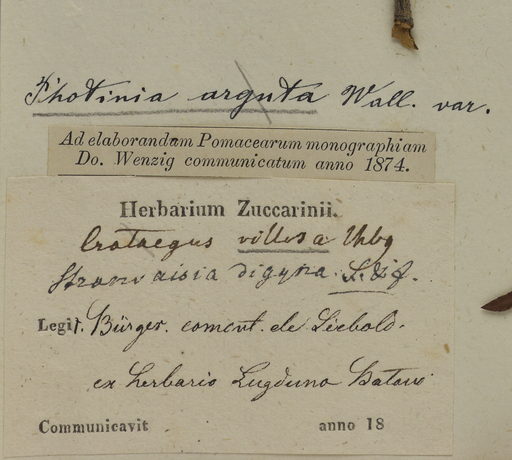 Photinia arguta Wall. var.
Ad elaborandam Pomacearum monographiam
Do. Wenzig communicatum anno 1874.
Herbarium Zuccarinii.
Crataegus villosa Thbg
Stranvaisia digyna. S. & Z.
Legit. Bürger. coment. de Siebold.
ex herbario Lugduno Batavo
Communicavit anno 18